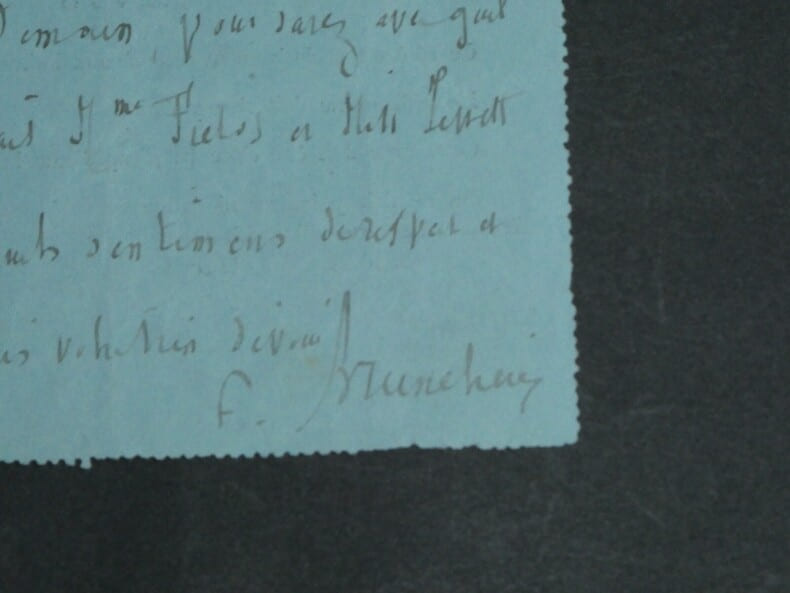 Demain, vous savez avec quel
Mme Fields et Miss Jewett
sentimens de respect et
votre très dévoué
F. Brunetière